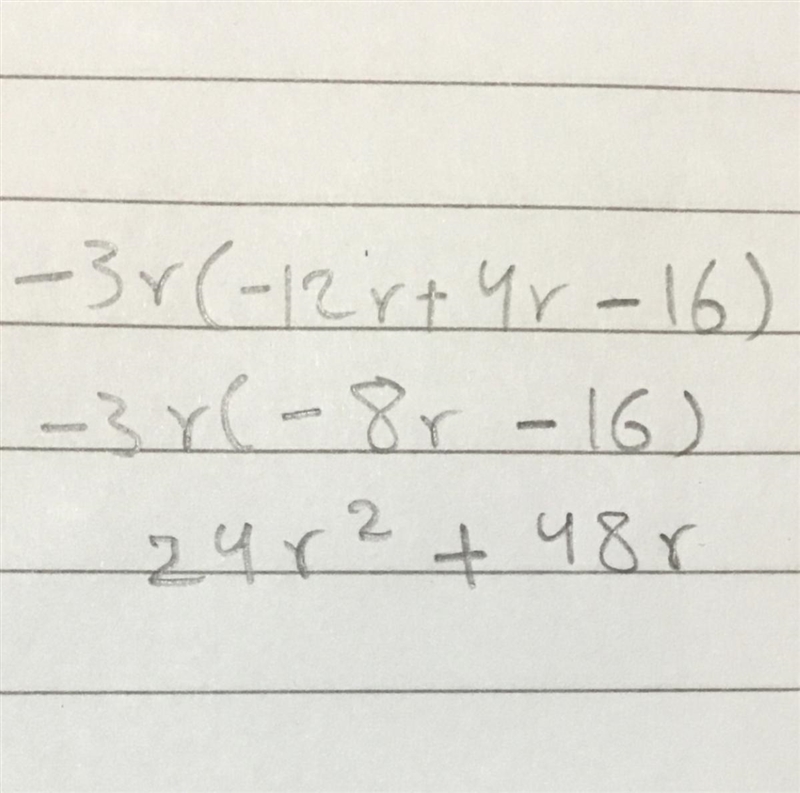 -3r(-12r+4r-16)
-3r(-8r-16)
24r²+48r